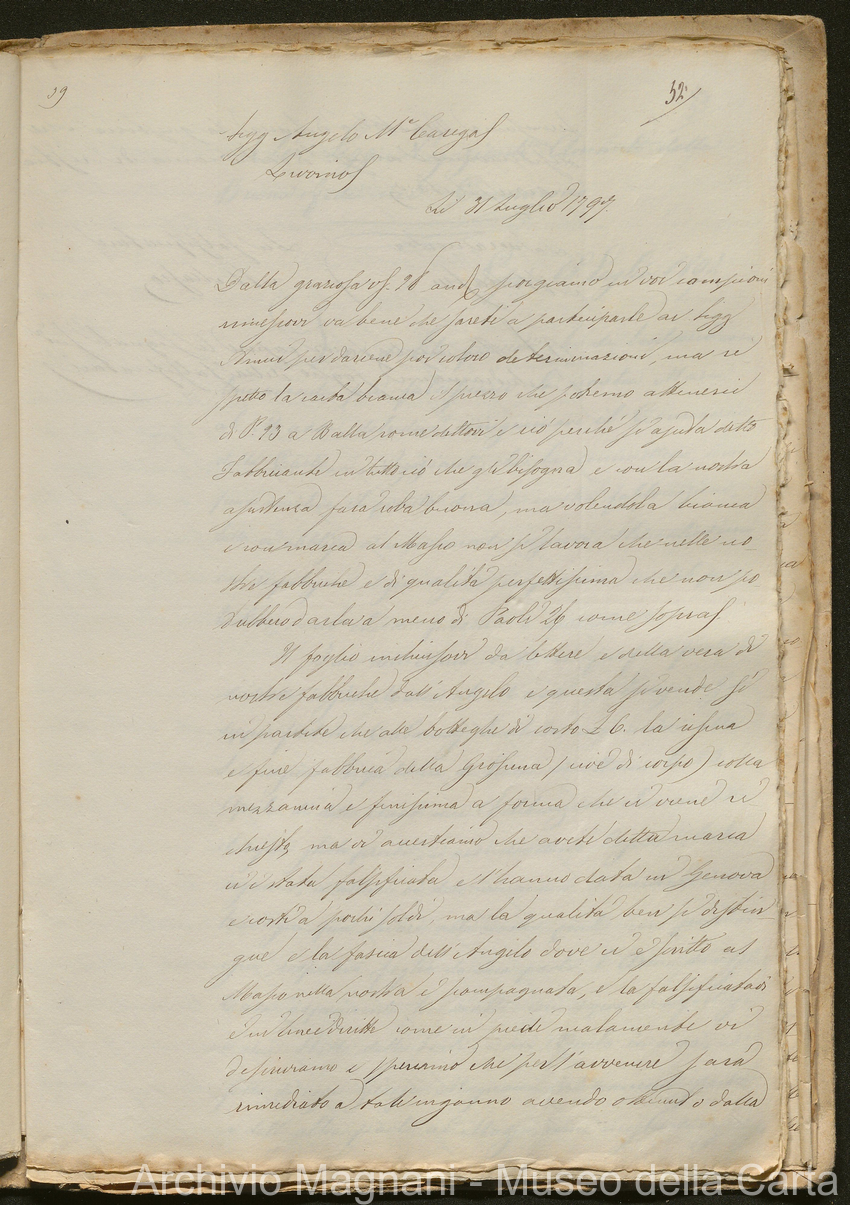 39
52
Sigg Angelo Mª Caregas
Livorno
Li 31 Luglio 1797.
Dalla graziosa vs. 28 and porgiamo in voi campioni
rimessovi va bene che fareti a participarle ai Sigg
per darcene poi loro determinazioni, ma ri
spetto la carta bianca il prezzo che potremo attenerci
di P. 23 a Balla come dettovi e ciò perché si ajuta detto
Fabbricante in tutto ciò che gli bisogna e con la nostra
assistenza farà roba buona, ma volendola bianca
e con marca al Masso non si lavora che nelle no
stre fabbriche e di qualità perfettissima che non po
trebbero darla a meno di Paoli 26 come sopra
Il foglio inchiusovi da lettere e della vera di
nostre fabbriche dall'Angelo e questa si vende sì
in partite che alle botteghe di costo £ 6. la
e fine fabbrica della Grossina (cioè di corpo) colla
mezzanina e finissima a forma che ci viene ri
chiesta, ma vi avertiamo che aveti detta marca
ci è stata falsificata e l'hanno data in Genova
e costì a pochi soldi, ma la qualità ben si distin
gue e la fascia dell'Angelo dove ci è scritto al
Masso nella nostra è scompagnata, e la falsificata
è in linee diritte come in piede malamente vi
desciviamo e speriamo che per l'avvenire sarà
rimediato a tale inganno avendo ottenuto dalla
Archivio Magnani - Museo della Carta